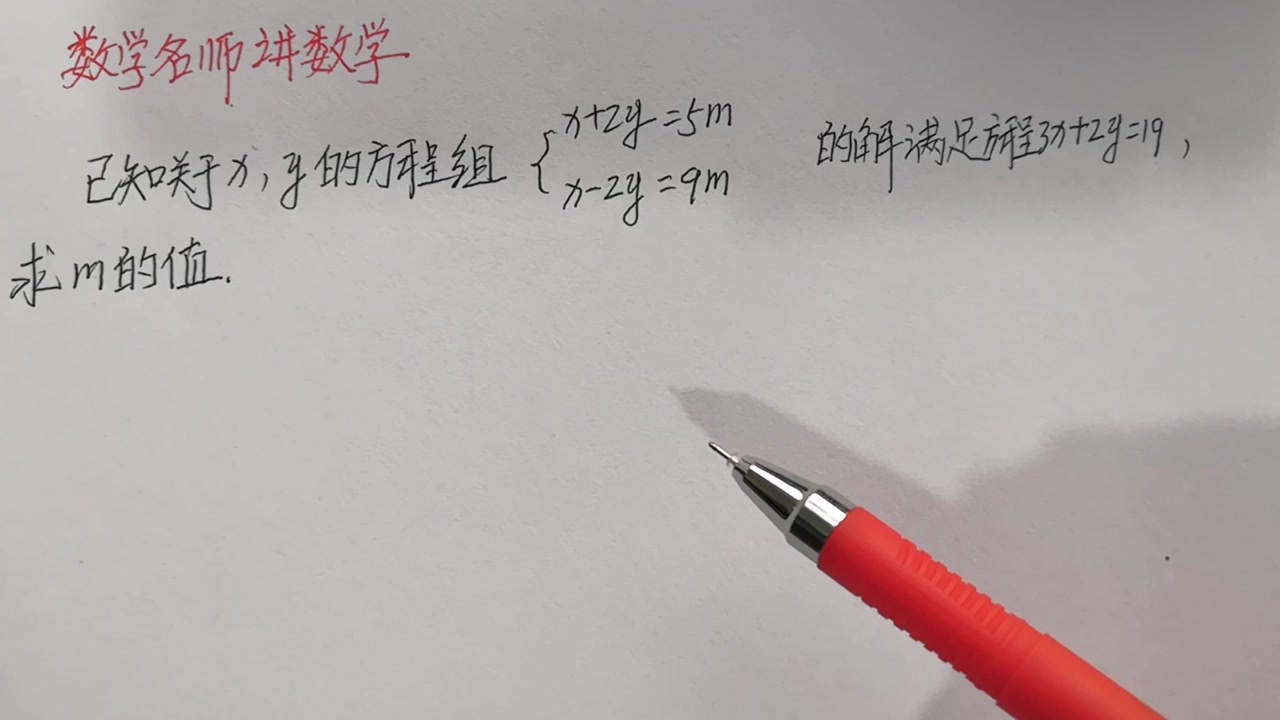 数学名师讲数学
已知关于x,y的方程组 { x+2y=5m
x-2y=9m 的解满足方程3x+2y=19,
求m的值.